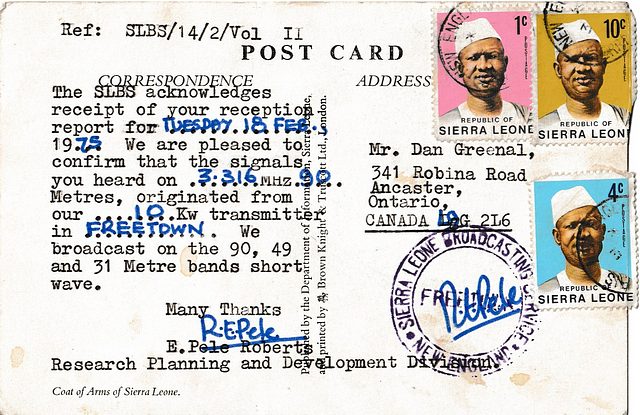 Ref: SLBS/14/2/Vol II
POST CARD
CORRESPONDENCE
ADDRESS
The SLBS acknowledges
receipt of your reception
report for TUESDAY 18 FEB.,
1975 We are pleased to
confirm that the signals
you heard on 3.316 MHz 90
Metres, originated from
our ....10..Kw transmitter
in FREETOWN. We
broadcast on the 90, 49
and 31 Metre bands short
wave.
Many Thanks
R.E.Pele
E.Pele Roberts
Research Planning and Development Division
Coat of Arms of Sierra Leone.
by the Department of Information, Sierra Leone,
and printed by Brown Knight & Truscott Ltd., London.
Mr. Dan Greenal,
341 Robina Road
Ancaster,
Ontario,
CANADA L9G 2L6
SIERRA LEONE BROADCASTING SERVICE
FREETOWN
R.E.Pele
NEW ENGLAND
1c
POSTAGE
REPUBLIC OF
SIERRA LEONE
10c
POSTAGE
REPUBLIC OF
SIERRA LEONE
4c
REPUBLIC OF
SIERRA LEONE
NEW ENGL
NEW EN